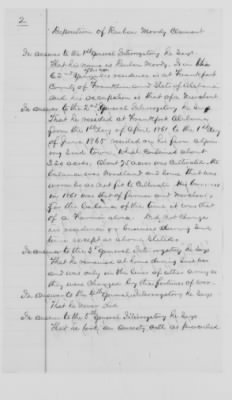 2
Deposition of Reuben Moody Claimant
In answer to the 1st General Interrogatory he Says
That his name is Reuben Moody. Is in the
62nd year of his age residence is at Frankfort
County of Franklin and State of Alabama
and his occupation is that of a Merchant
In answer to the 2nd General Interrogatory he Says
That he resided at Frankfort Alabama
from the 1st day of April 1861 to the 1st day
of June 1865 resided on his farm adjoin-
ing said town, which contained about
320 acres. About 75 acres was Cultivated. The
balance was Woodland and some that was
worn so as not fit to Cultivate. His business
in 1861 was that of farmer and Merchant,
For the balance of the time it was that
of a Farmer alone. Did not Change
his residence or business during said
time except as above Stated.
In answer to the 3rd General Interrogatory he Says
That he remained at home during said war
and was only in the lines of either army as
they were Changed by the fortunes of war.
In answer to the 4th General Interrogatory he Says
That he never did
In answer to the 5th General Interrogatory he Says
That he took an amnesty oath as prescribed